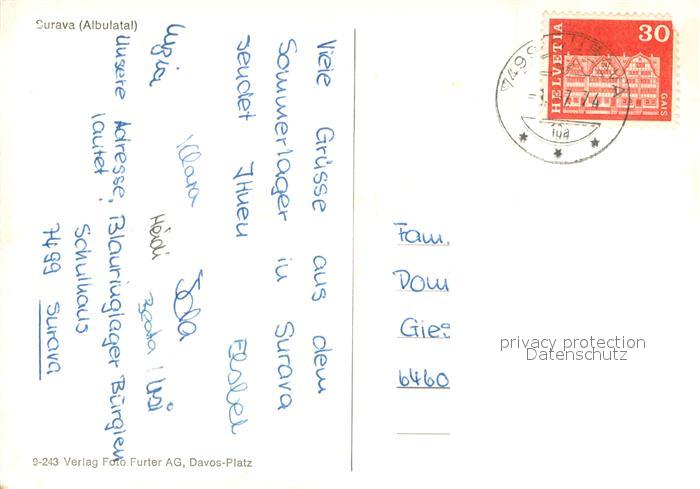 Surava (Albulatal)
Viele Grüsse aus dem
Sommerlager in Surava
sendet Ihnen Elsbeth
Klara
Heidi
Beata
Unsere Adresse, Blauringlager Bürglen
lautet:
Schulhaus
7499 Surava
9-243 Verlag Foto Furter AG, Davos-Platz
HELVETIA
30
GAIS
7499
7.74
Fam.
Domi
Gies
6460
privacy protection
Datenschutz